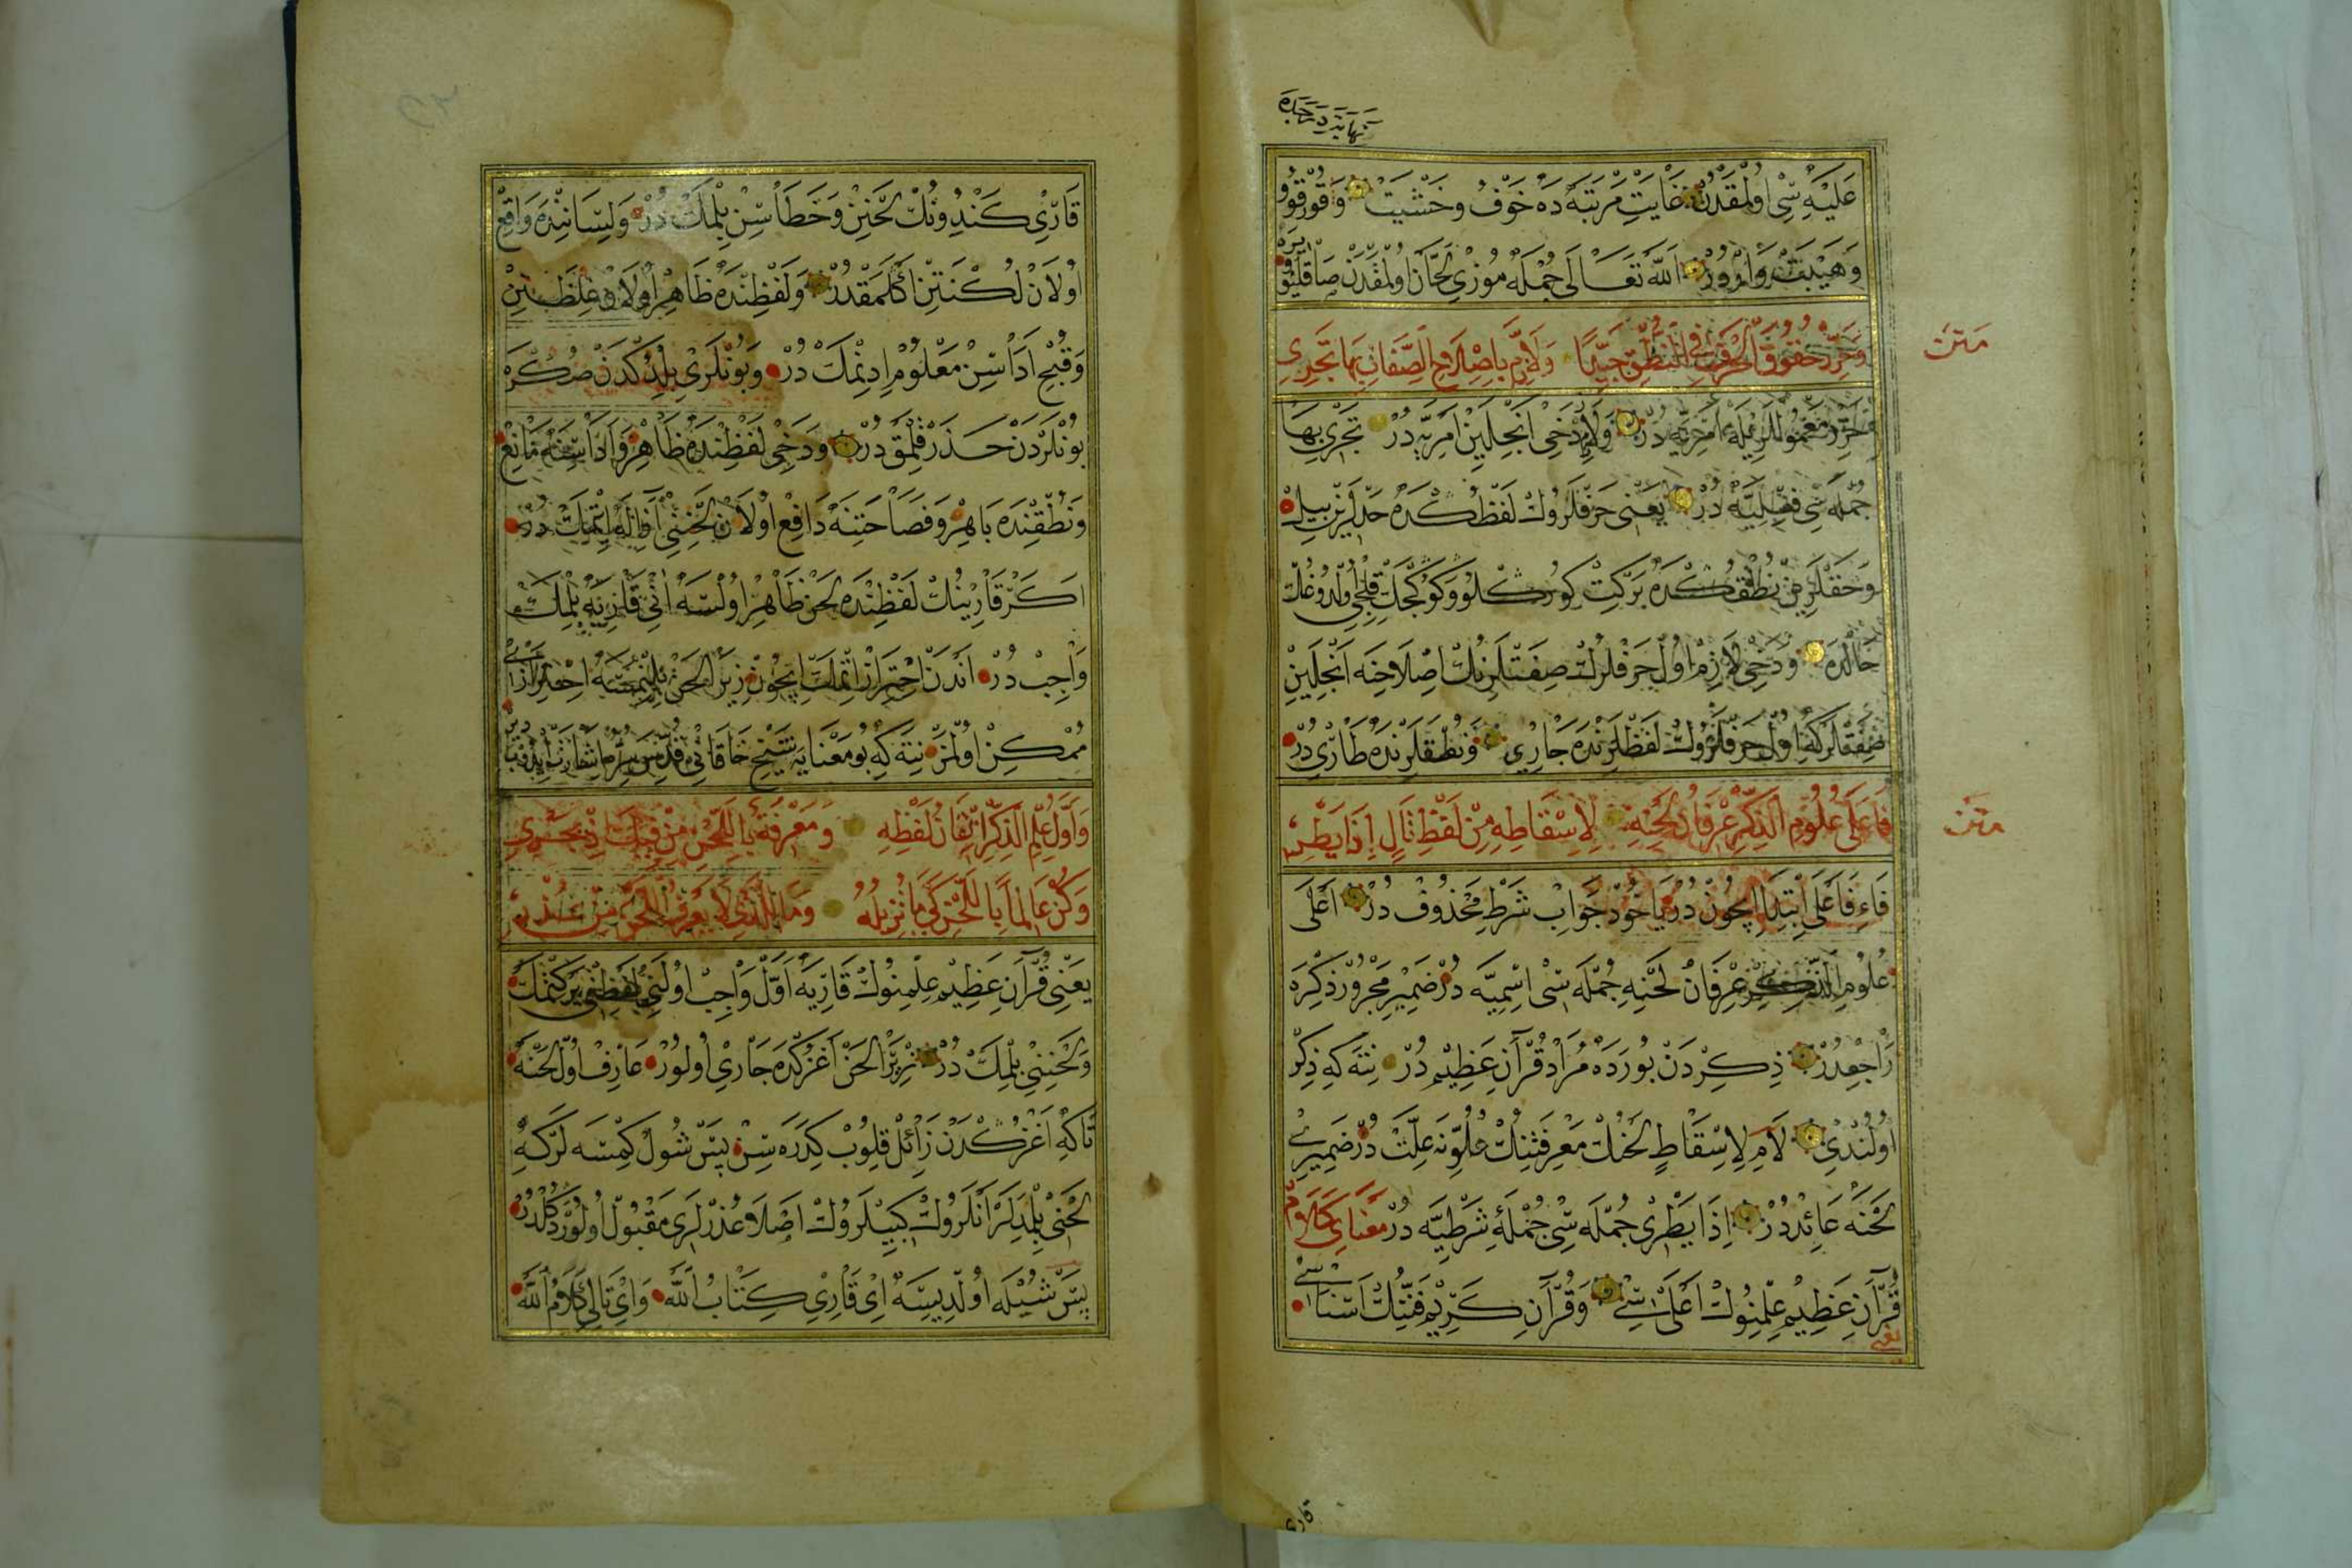 نهایتدرجده
علیه سی اولمقدن غایت مرتبه ده خوف وخشیت وقورقو
وهیبت واردور الله تعالی جمله موزی لحان اولمقدن صاقلیو
ویره
وحرر حقوق الحرف فی النطق جیدا ولازم باصلاح الصفات بها تجری
متن
جمله سی فعلیه در یعنی حرفلروك لفظكده حدلرین بیل
وحقلرین نطقكده برکت کورکلو وکوکچك قلیجی اولدوغك
حالده ودخی لازم اول حرفلرك صفتلرینك اصلاحنه انجلین
صفتلرکه اول حرفلروك لفظلرنده جاری ونطقلرنده طاری در
فاعلی علوم الذکر عرفان لحنه لاسقاطه من لفظ تال اذا یطری
متن
فاء فاعلی ابتدا ایچون در یاخود جواب شرط محذوف در اعلی
علوم الذکر عرفان لحنه جمله سی اسمیه در ضمیر مجرور ذکره
راجعدر ذکردن بوراده مراد قرآن عظیم در نته که ذکر
اولندی لام لاسقاط لحنك معرفتنك علوینه علت در ضمیری
لحنه عائددر اذا یطری جمله سی جملهٔ شرطیه در معنای کلام
قرآن عظیم علمنوك اعلی سی وقرآن کریم فننك اسناسی
یعنی
قاری
قاری کندونك لحنین وخطاسین بلمك در ولسانینده واقع
اولان لکنتین اکلمقدر ولفظنده ظاهر اولان غلظتین
وقبح اداسین معلوم ادنمك در وبونلری بلدکدن صکره
بونلردن حذر قلمق در ودخی لفظنده ظاهر واداسنه مانع
ونطقنده باهر وفصاحتنه دافع اولان لحننی ازاله ایتمك در
اکر قارینك لفظنده لحن ظاهر اولسه انی قارینه بلمك
واجب در اندن احتراز اتمك ایچون زیرا لحن بلنمسه احترازی
ممکن اولمز نته که بو معنایه شیخ خاقانی قدس سره اشارت ایدوب
دیر
واول علم الذکر اتقان لفظه ومعرفة باللحن من فیك اذ یجری
وکن عالما باللحن کی ما تزیله وما للذی لا یعرف اللحن من عذر
یعنی قرآن عظیم علمنوك قاریه اول واجب اولنی لفظنی برکتمك
ولحننی بلمك در زیرا لحن اغزکده جاری اولور عارف اول لحنه
تاکه اغزکدن زائل قلوب کدره سن پس شول کمسه لرکه
لحنی بلمدیلر انلروك کبیلروك اصلا عذرلری مقبول اولور دکلدر
پس شیله اولدیسه ای قاری کتاب الله وای تالی کلام الله